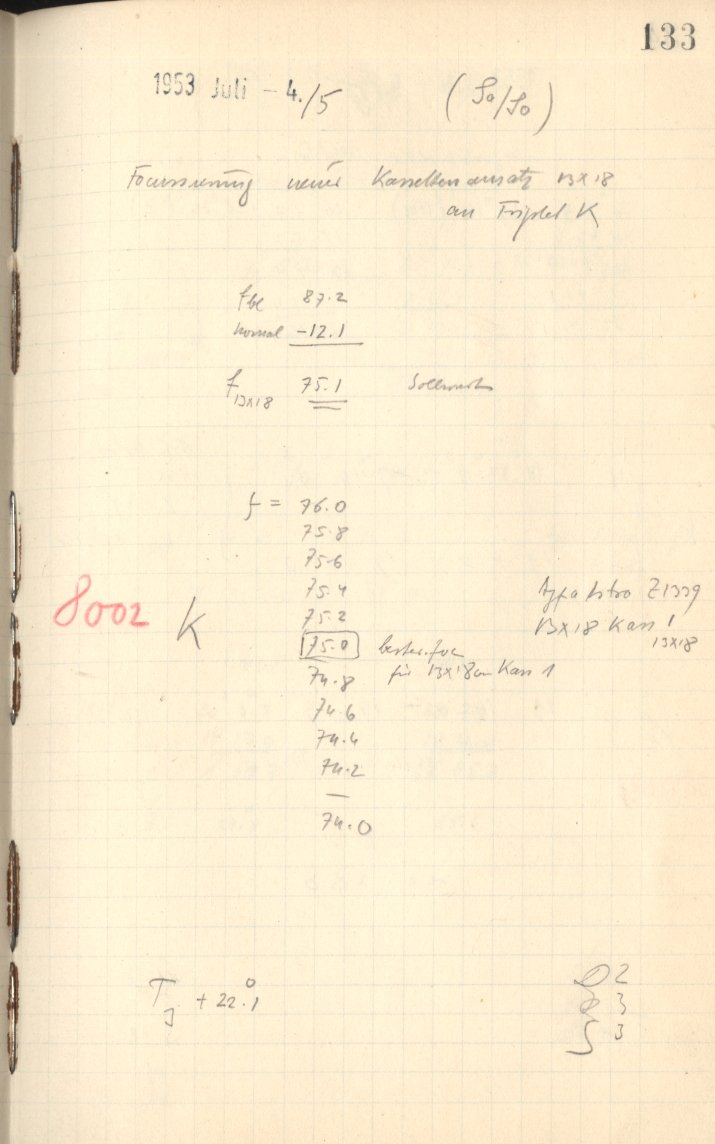 133
1953 Juli - 4./5 (So/So)
Focussierung neuer Kassettenansatz 13x18
an Triplet K
fbl 87.2
normal -12.1
f13x18 75.1 Sollwert
f = 76.0
75.8
75.6
75.4 Agfa Astro Z1339
75.2 13x18 Kass 1
13x18
8002 K
75.0 bester foc
74.8 für 13x18 cm Kass 1
74.6
74.4
74.2
—
74.0
TJ + 22.°1
2
3
S 3